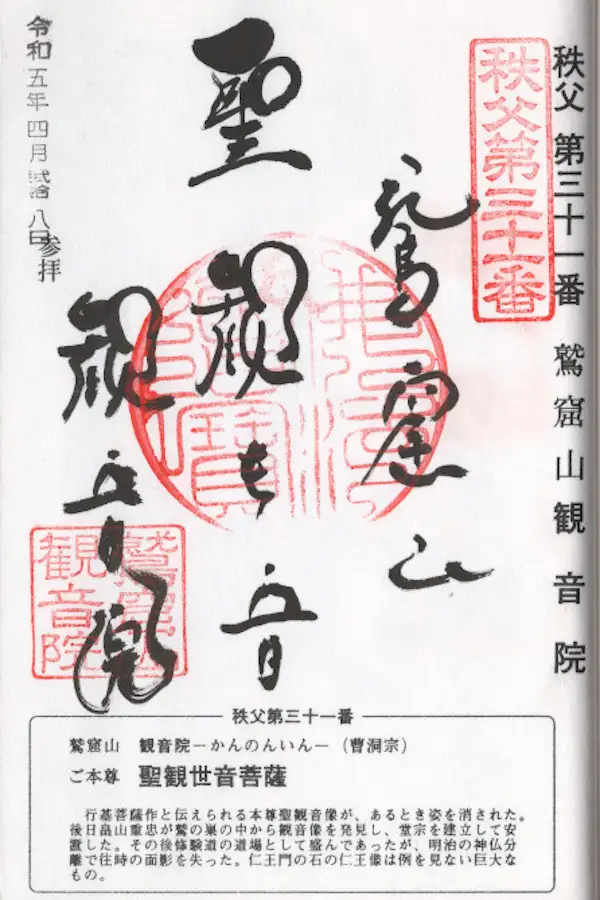 秩父 第三十一番 鷲窟山 観音院
秩父第三十一番
鷲窟山
聖観世音
観音院
鷲窟山
観音院
令和五年四月弐拾八日参拝
秩父第三十一番
鷲窟山 観音院－かんのんいん－（曹洞宗）
ご本尊 聖観世音菩薩
行基菩薩作と伝えられる本尊聖観音像が、あるとき姿を消された。
後日畠山重忠が鷲の巣の中から観音像を発見し、堂宗を建立して安
置した。その後修験道の道場として盛んであったが、明治の神仏分
離で往時の面影を失った。仁王門の石の仁王像は例を見ない巨大な
もの。